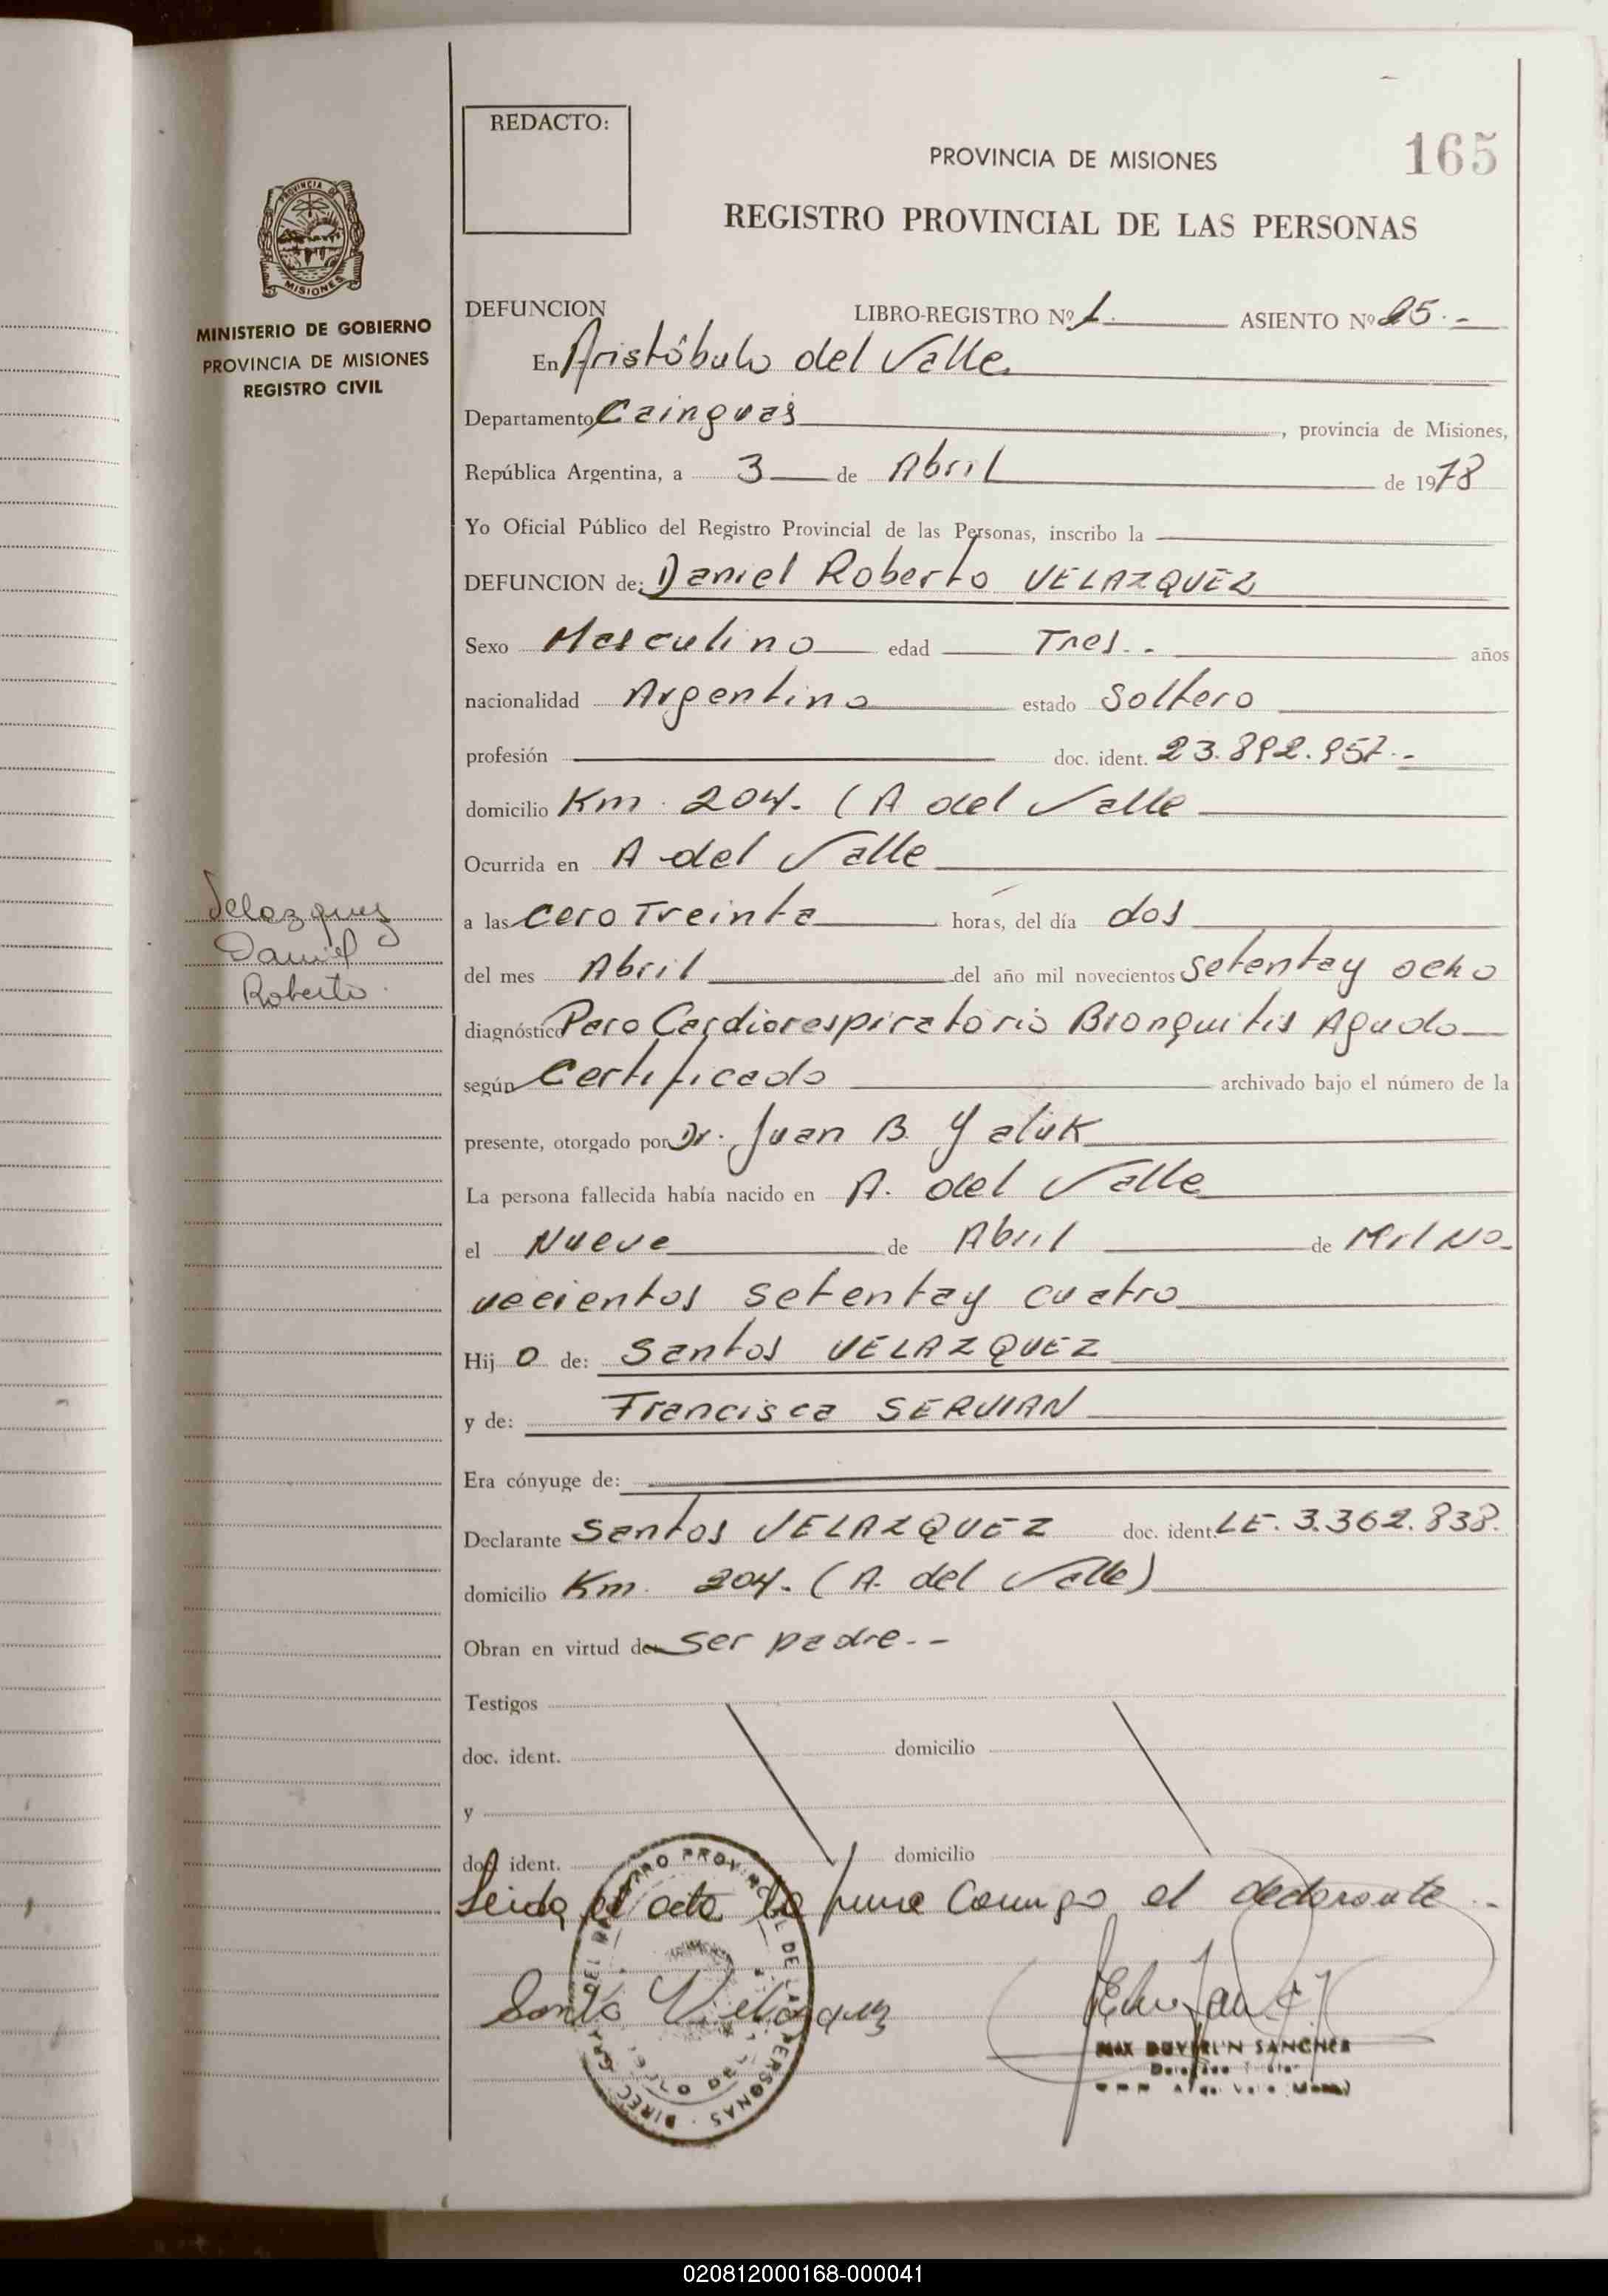 REDACTO:
PROVINCIA DE MISIONES
165
REGISTRO PROVINCIAL DE LAS PERSONAS
PROVINCIA DE
MISIONES
MINISTERIO DE GOBIERNO
PROVINCIA DE MISIONES
REGISTRO CIVIL
DEFUNCION LIBRO-REGISTRO Nº 1. ASIENTO Nº 25.-
En Aristóbulo del Valle
Departamento Cainguas, provincia de Misiones,
República Argentina, a 3 de Abril de 1978
Yo Oficial Público del Registro Provincial de las Personas, inscribo la
DEFUNCION de: Daniel Roberto VELAZQUEZ
Sexo Masculino edad Tres.- años
nacionalidad Argentino estado Soltero
profesión doc. ident. 23.892.957.-
domicilio Km. 204. (A del Valle
Ocurrida en A del Valle
a las Cero Treinta horas, del día dos
del mes Abril del año mil novecientos Setentay ocho
diagnóstico Paro Cardiorespiratorio Bronquitis Aguda
según Certificado archivado bajo el número de la
presente, otorgado por Dr. Juan B. Yaluk
La persona fallecida había nacido en A. del Valle
el Nueve de Abril de Mil No-
vecientos Setentay cuatro
Hij o de: Santos VELAZQUEZ
y de: Francisca SERVIAN
Era cónyuge de:
Declarante Santos VELAZQUEZ doc. ident. LE. 3.362.838.
domicilio Km. 204. (A. del Valle)
Obran en virtud de Ser padre.-
Testigos
doc. ident. domicilio
y
doc. ident. domicilio
Leida el acta la firma Conmigo el declarante.-
Santo Velazquez
SANCHEZ
Velazquez
Daniel
Roberto.
020812000168-000041